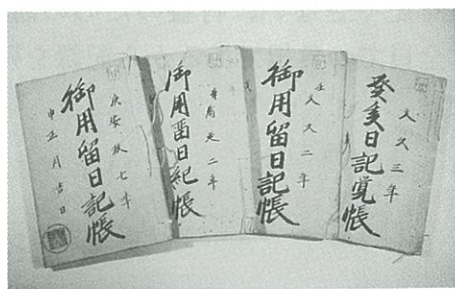 文久三年
癸亥日記覚帳
壬 文久二年
御用留日記帳
辛酉 二年
御用畄日紀帳
庚安政七年
御用留日記帳
申正月吉日